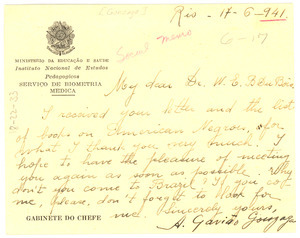 Rio - 17-6-941.
6-17
MINISTERIO DA EDUCAÇÃO E SAUDE
Instituto Nacional de Estudos
Pedagogicos
SERVIÇO DE BIOMETRIA
MEDICA
My dear Dr. W. E. B. Du Bois,
I received your letter and the list
of books on American Negroes, for
what I thank you very much. I
hope to have the pleasure of meeting
you again as soon as possible. Why
don't you come to Brazil? If you
me, please, don't forget to look for
me. Sincerely yours,
A. Gavião Gonzaga
GABINETE DO CHEFE